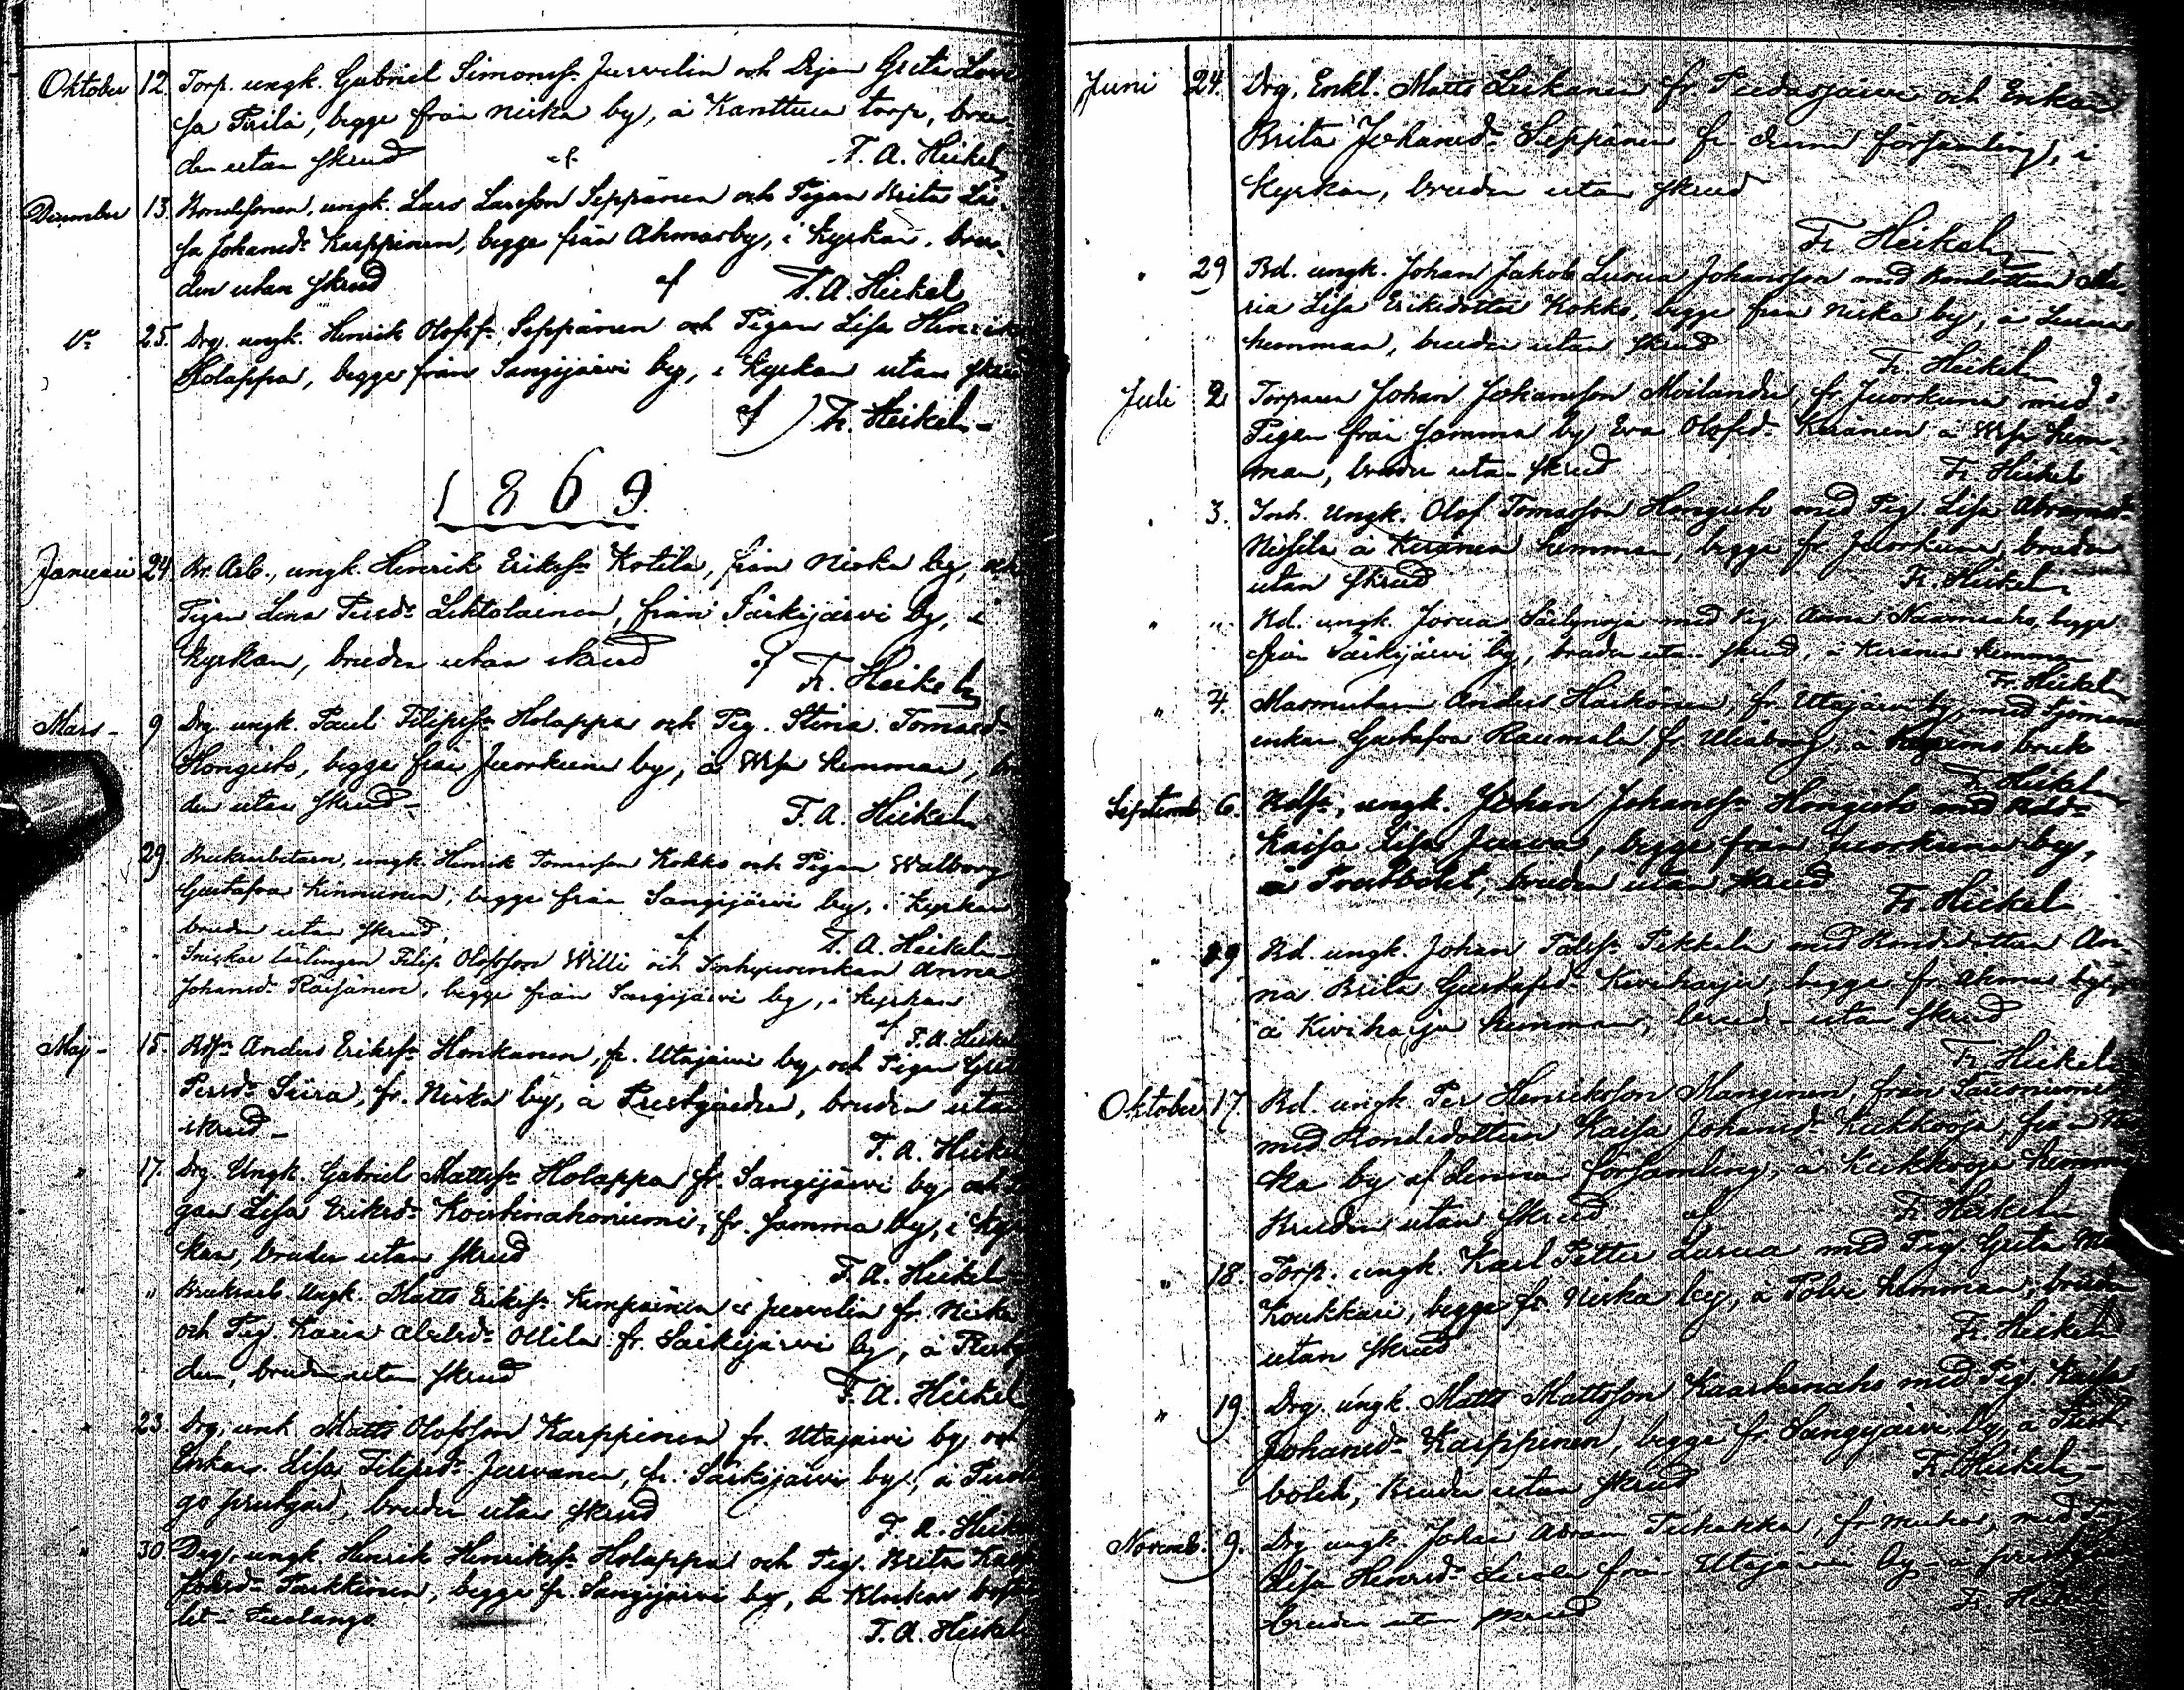 Oktober 12. Torp. ungk. Gabriel Simonss. Jurvelin och Greta Lovi
sa Pirilä, begge från Niska by, å torp, bru-
den utan skrud af F. A. Heikel
December 13. Bondesonen, ungk. Lars Larsson Seppänen och Pigan Brita Li-
sa Johansd. Karppinen, begge från Ahmas by, i kyrkan, bru-
den utan skrud af F. A. Heikel
25. Drg. ungk. Henrik Olofss. Seppänen och Pigan Lisa Henriks
Holappa, begge från Sangijärvi by, i kyrkan utan skrud
af Fr. Heikel
1869.
Januari 24 ungk. Henrik Erikss. Kotila, från Niska by, och
Pigan Lena Persd. Lehtolainen, från Särkijärvi by, i
kyrkan, bruden utan skrud af Fr. Heikel
Mars 9 Drg. ungk. Paul Filipss. Holappa och Pig. Stina Tomasd.
Hongisto, begge från Juorkuna by, å hemman, bru
den utan skrud F. A. Heikel
29 Bruksarbetaren, ungk. Henrik Tomasson Kokko och Pigan Walborg
Gustafva Kinnunen, begge från Sangijärvi by, i kyrkan
bruden utan skrud, af F. A. Heikel
" Snickar lärlingen Filip Olofsson Willi och Inhysesenkan Anna
Johansd. Räisänen, begge från Sangijärvi by, i kyrkan
af F. A. Heikel
Maj 15. Anders Erikss. Honkanen, fr. Utajärvi by och Pigan Greta
Persd. Siira, fr. Niska by, å Prestgården, bruden utan
skrud F. A. Heikel
" 17. Drg. Ungk. Gabriel Mattss. Holappa fr. Sangijärvi by och Pi
gan Lisa Eriksd. fr. samma by, i kyr
kan, bruden utan skrud F. A. Heikel
" " Bruksarb. Ungk. Matts Erikss. Kemppainen Jurvelin fr. Niska
och Pig. Karin Ollila fr. Särkijärvi by, å Prestg
den, bruden utan skrud F. A. Heikel
" 23 Drg. unk. Matts Olofsson Karppinen fr. Utajärvi by och
Enkan Lisa Filipsd. Juvanen, fr. Särkijärvi by, å
go prestgård, bruden utan skrud F. A. Heikel
" 30 Drg. ungk. Henrik Henrikss. Holappa och Pig. Brita
Turkkinen, begge fr. Sangijärvi by, å Klockar bostäl
let i F. A. Heikel
Juni 24. Drg. Enkl. Matts fr. Pudasjärvi och Enkan
Brita Johansd. Seppänen fr. denna församling, i
kyrkan, bruden utan skrud
Fr. Heikel
" 29 Bd. ungk. Johan Jakob Luova Johansson med Bondottern Ma-
ria Lisa Eriksdotter Kokko, begge från Niska by, å Luova
hemman, bruden utan skrud Fr. Heikel
Juli 2 Torparen Johan Johansson Moilanen, fr. Juorkuna med
Pigan från samma by Eva Olofsd. Keränen å hem-
man, bruden utan skrud Fr. Heikel
" 3. Inh. Ungk. Olof Tomasson Hongisto med Pig. Lisa Abramsd.
å Keränen hemman, begge fr. Juorkuna, bruden
utan skrud Fr. Heikel
" " Bd. ungk. Josua Säilynoja med Pig. Anna begge
från Särkijärvi by, bruden utan skrud, å Keränen hemman
Fr. Heikel
" 4. Anders Härkönen, fr. Utajärvi by, med Sjömans
enkan Gustafva Raumala fr. Uleåborg, å bruk
Fr. Heikel
Septemb. 6. ungk. Johan Johanss. Hongisto med
Kaisa Lisa Juvva, begge från Juorkuna by,
å bruden utan skrud Fr. Heikel
" 29 Bd. ungk. Johan Pekkala med Bondedottern An-
na Brita Gustafsd. Kiviharju, begge fr. Ahmas by,
å Kiviharju hemman, brud. utan skrud
Fr. Heikel
Oktober 17. Bd. ungk. Per Henriksson Manginen, från
med Bondedottern Kaisa Johansd. Kukkooja, från
ka by af denna församling, å Kukkooja hemman
Bruden utan skrud af Fr. Heikel
" 18. Torp. ungk. Karl Petter Luova med Pig. Greta
Koukkari, begge fr. Niska by, å Polvi hemman, bruden
utan skrud Fr. Heikel
" 19. Drg. ungk. Matts Mattsson med Pig. Kaisa
Johansd. Karppinen, begge fr. Sangijärvi by, å
bolet, Bruden utan skrud Fr. Heikel
Novemb. 9. Drg. ungk. Johan Abram fr. Muhos, med
Lisa Henrsd. från Utajärvi by
bruden utan skrud Fr. Heikel